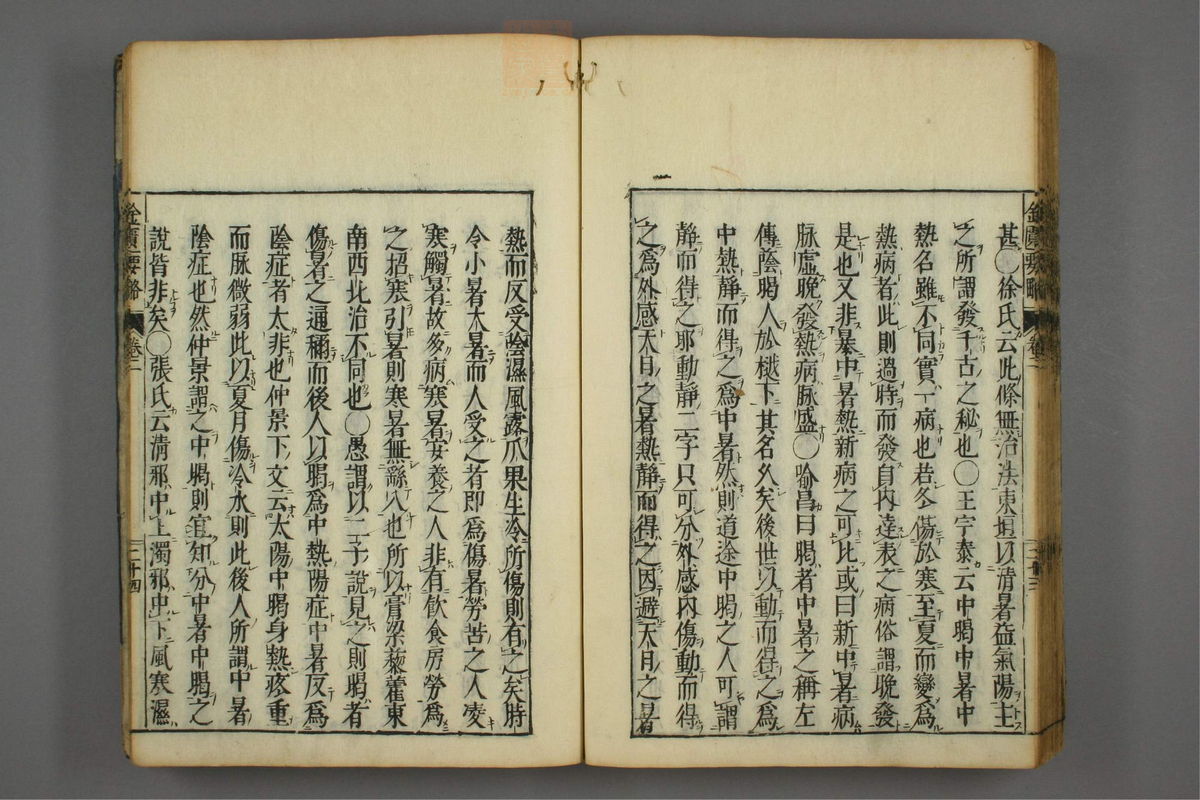 甚◯徐氏云此條無治法東垣以清暑益氣陽主
之所謂發千古之秘也◯王宇泰云中暍中暑中
熱名雖不同實一病也若冬傷於寒至夏而變爲
熱病者此則過時而發自內達表之病俗謂晚發
是也又非暴中暑熱新病之可比或曰新中暑病
脉虛晚發熱病脉盛◯喻昌曰暍者中暑之稱左
傳蔭暍人於樾下其名久矣後世以動而得之爲
中熱靜而得之爲中暑然則道途中暍之人可謂
靜而得之耶動靜二字只可分外感內傷動而得
之爲外感天日之暑熱靜而得之因避天日之暑
金匱要略 卷二 二十三
熱而反受陰濕風露瓜果生冷所傷則有之矣時
令小暑大暑而人受之者即爲傷暑勞苦之人凌
寒觸暑故多病寒暑安養之人非有飲食房勞爲
之招寒引暑則寒暑無繇入也所以膏粱藜藿東
南西北治不同也◯愚謂以二子說見之則暍者
傷暑之通稱而後人以暍爲中熱陽症中暑反爲
陰症者太非也仲景下文云太陽中暍身熱疼重
而脉微弱此以夏月傷冷水則此後人所謂中暑
陰症也然仲景謂之中暍則宜知分中暑中暍之
說皆非矣◯張氏云清邪中上濁邪中下風寒濕
金匱要略 卷二 二十四